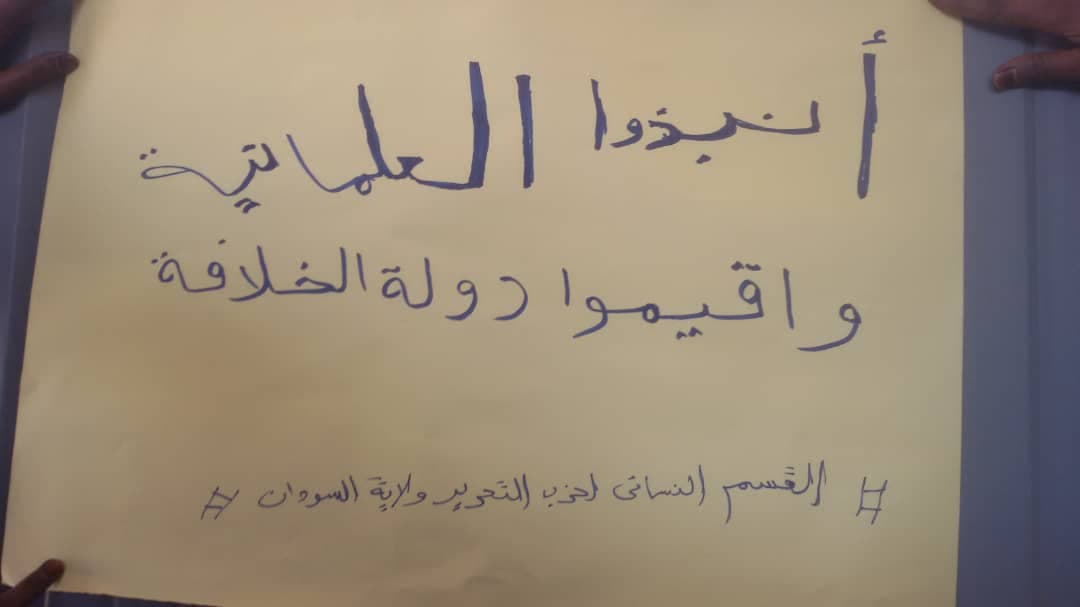 أنبذوا العلمانية
واقيموا دولة الخلافة
# القسم النسائى لحزب التحرير ولاية السودان #